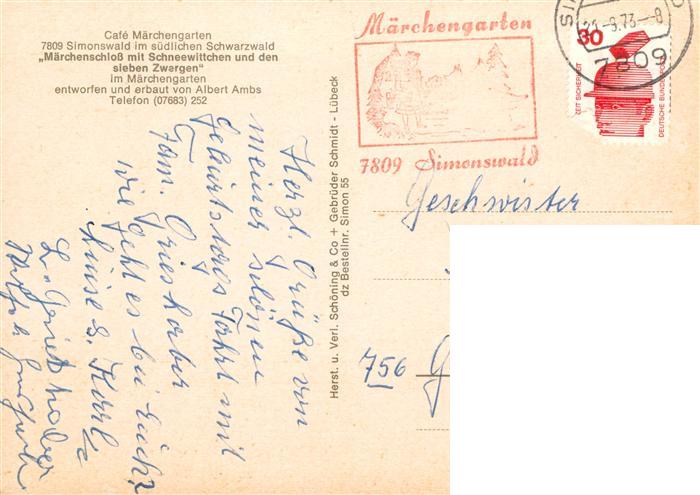 Café Märchengarten
7809 Simonswald im südlichen Schwarzwald
„Märchenschloß mit Schneewittchen und den
sieben Zwergen"
im Märchengarten
entworfen und erbaut von Albert Ambs
Telefon (07683) 252
Märchengarten
7809 Simonswald
-9.73--8
7809
30
ZEIT SICHERHEIT
DEUTSCHE BUNDESPOST
Herst. u. Verl. Schöning & Co + Gebrüder Schmidt - Lübeck
dz Bestellnr. Simon 55
Herzl. Grüße von
meiner
Geburtstags Fahrt mit
Fam. Grieshaber
wie geht es bei Euch?
Luise & Karl
Geschwister
756 G